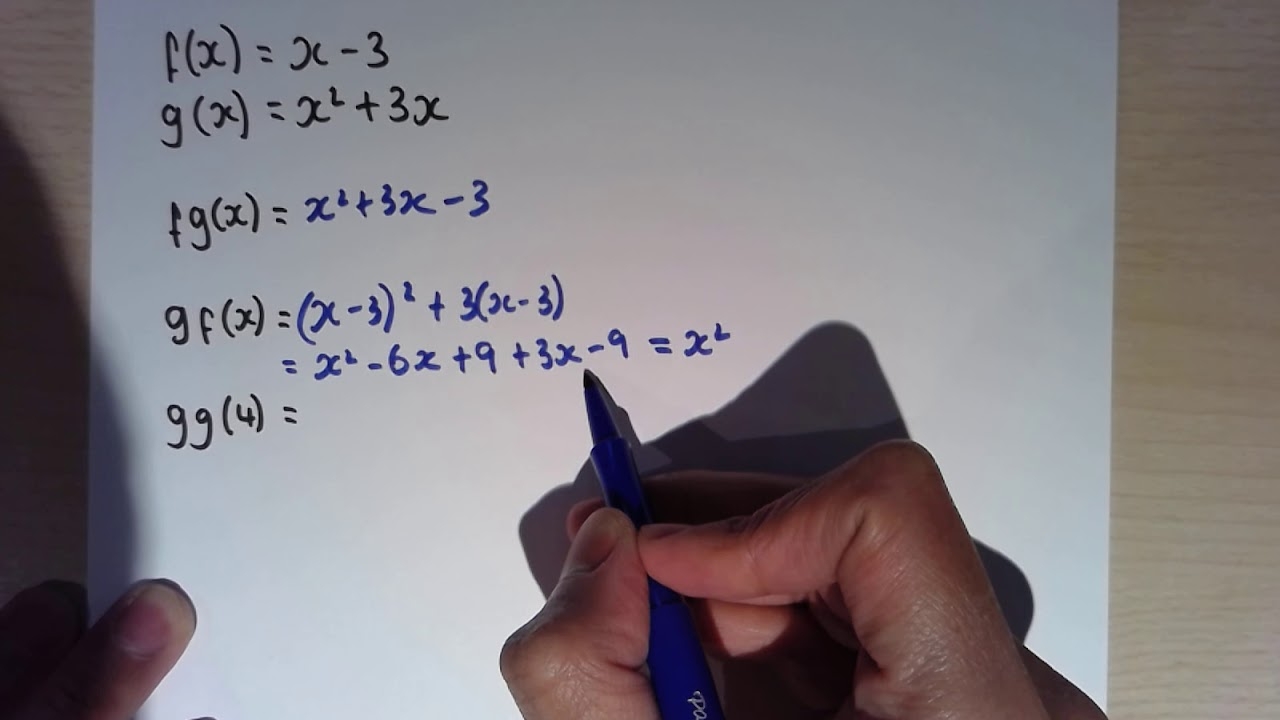 f(x) = x - 3
g(x) = x² + 3x
fg(x) = x² + 3x - 3
gf(x) = (x - 3)² + 3(x - 3)
= x² - 6x + 9 + 3x - 9 = x²
gg(4) =